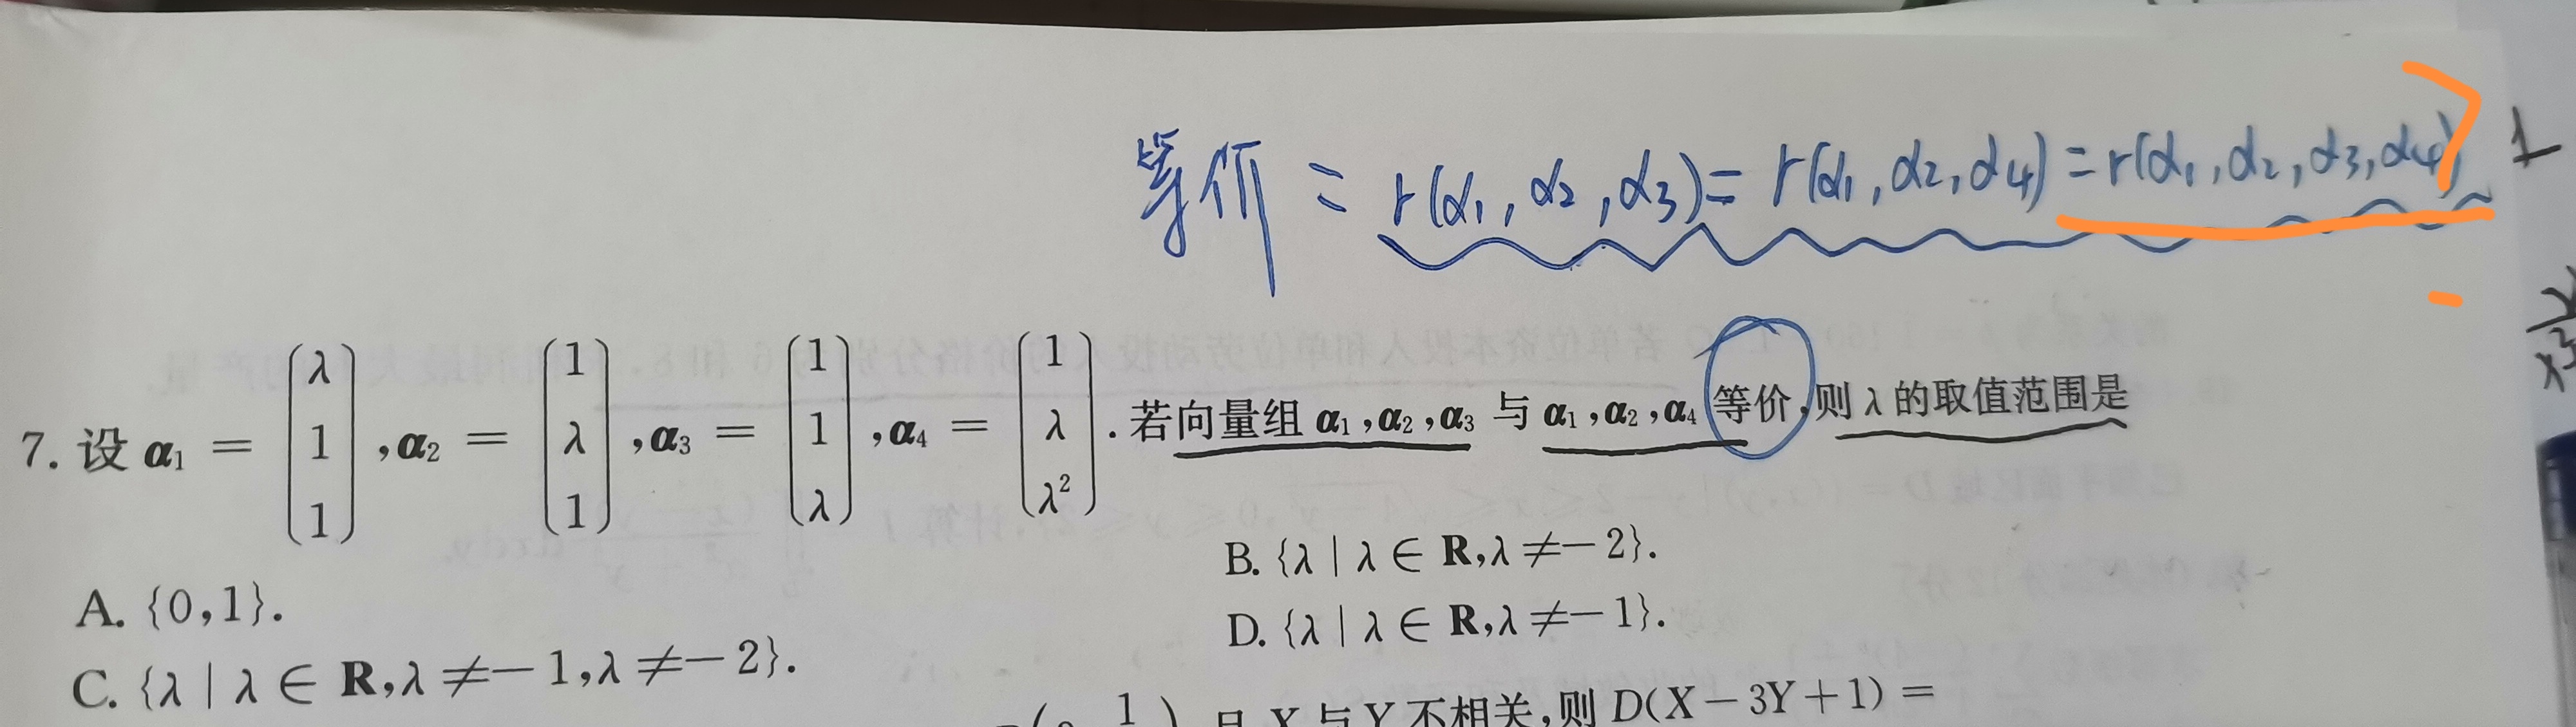 等价 = r(α₁, α₂, α₃) = r(α₁, α₂, α₄) = r(α₁, α₂, α₃, α₄)
1
7. 设 α₁ = (λ 1 1), α₂ = (1 λ 1), α₃ = (1 1 λ), α₄ = (1 λ λ²). 若向量组 α₁, α₂, α₃ 与 α₁, α₂, α₄ 等价, 则 λ 的取值范围是
A. {0,1}.
B. {λ | λ ∈ R, λ ≠ −2}.
C. {λ | λ ∈ R, λ ≠ −1, λ ≠ −2}.
D. {λ | λ ∈ R, λ ≠ −1}.
且 X 与 Y 不相关, 则 D(X−3Y+1) =